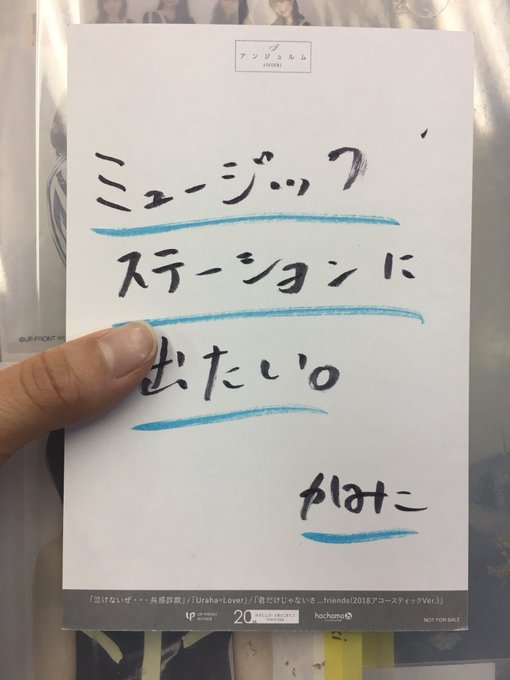 アンジュルム
ミュージック
ステーションに
出たい。
かみこ
©UP-FRONT W
「泣けないぜ・・・共感詐欺」/「Uraha=Lover」/「君だけじゃないさ...friends(2018アコースティックVer.)」
UP-FRONT WORKS
20th HELLO! PROJECT
hachama
NOT FOR SALE